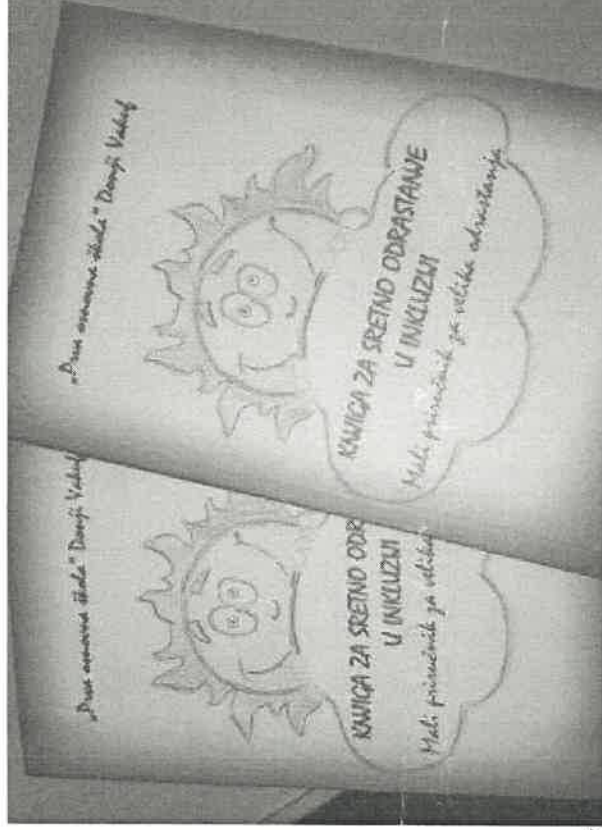 „Prva osnovna škola“ Donji Vakuf
KNJIGA ZA SRETNO ODRASTANJE
U INKLUZIJI
Mali priručnik za velika odrastanja
„Prva osnovna škola“ Donji Vakuf
KNJIGA ZA SRETNO ODR
U INKLUZIJI
Mali priručnik za velika